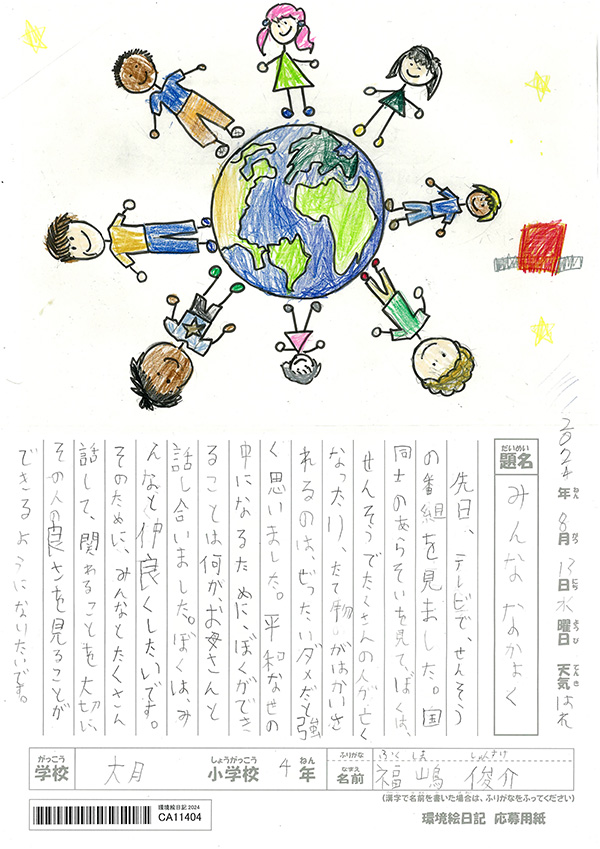 2024年ねん8月がつ13日にち水曜日ようび 天気てんき はれ
題名だいめい みんな なかよく
先日、テレビで、せんそう
の番組を見ました。国
同士のあらそいを見て、ぼくは、
せんそうでたくさんの人が亡く
なったり、たて物がはかいさ
れるのは、ぜったいダメだと強
く思いました。平和なせの
中になるために、ぼくができ
ることは何か、お母さんと
話し合いました。ぼくは、み
んなと仲良くしたいです。
そのために、みんなとたくさん
話して、関わることを大切に、
その人の良さを見ることが
できるようになりたいです。
学校がっこう 大月 小学校しょうがっこう 4年ねん
ふりがな ふくしま しゅんすけ
名前なまえ 福嶋 俊介
(漢字で名前を書いた場合は、ふりがなをふってください)
環境絵日記2024
CA11404
環境絵日記 応募用紙